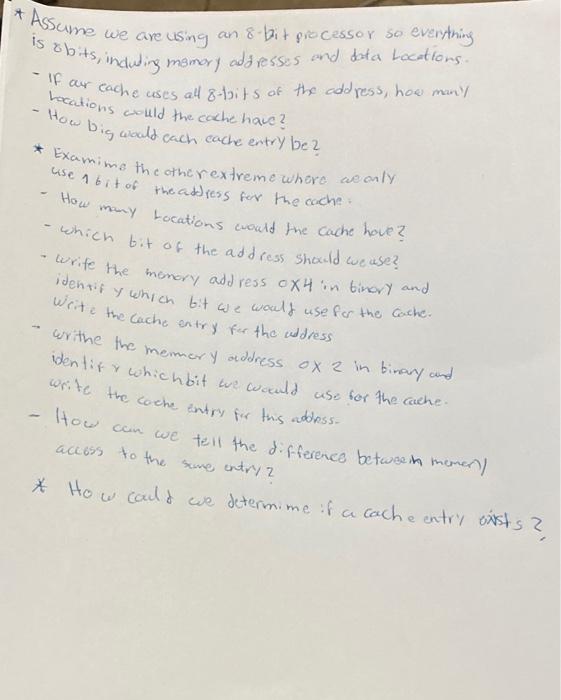 * Assume we are using an 8-bit processor so everything
is 8bits, including memory addresses and data Locations.
- If our cache uses all 8-bits of the address, how many
Locations would the cache have?
- How big would each cache entry be?
* Examime the other extreme where we only
use 1 bit of the address for the cache.
- How many Locations would the cache have?
- which bit of the address should we use?
- write the memory address 0x4 in binary and
identify which bit we would use for the cache.
Write the cache entry for the address
- writhe the memory address 0x2 in binary and
identify which bit we would use for the cache.
write the cache entry for this address.
- How can we tell the difference between memory
access to the same entry?
* How could we determime if a cache entry exists?